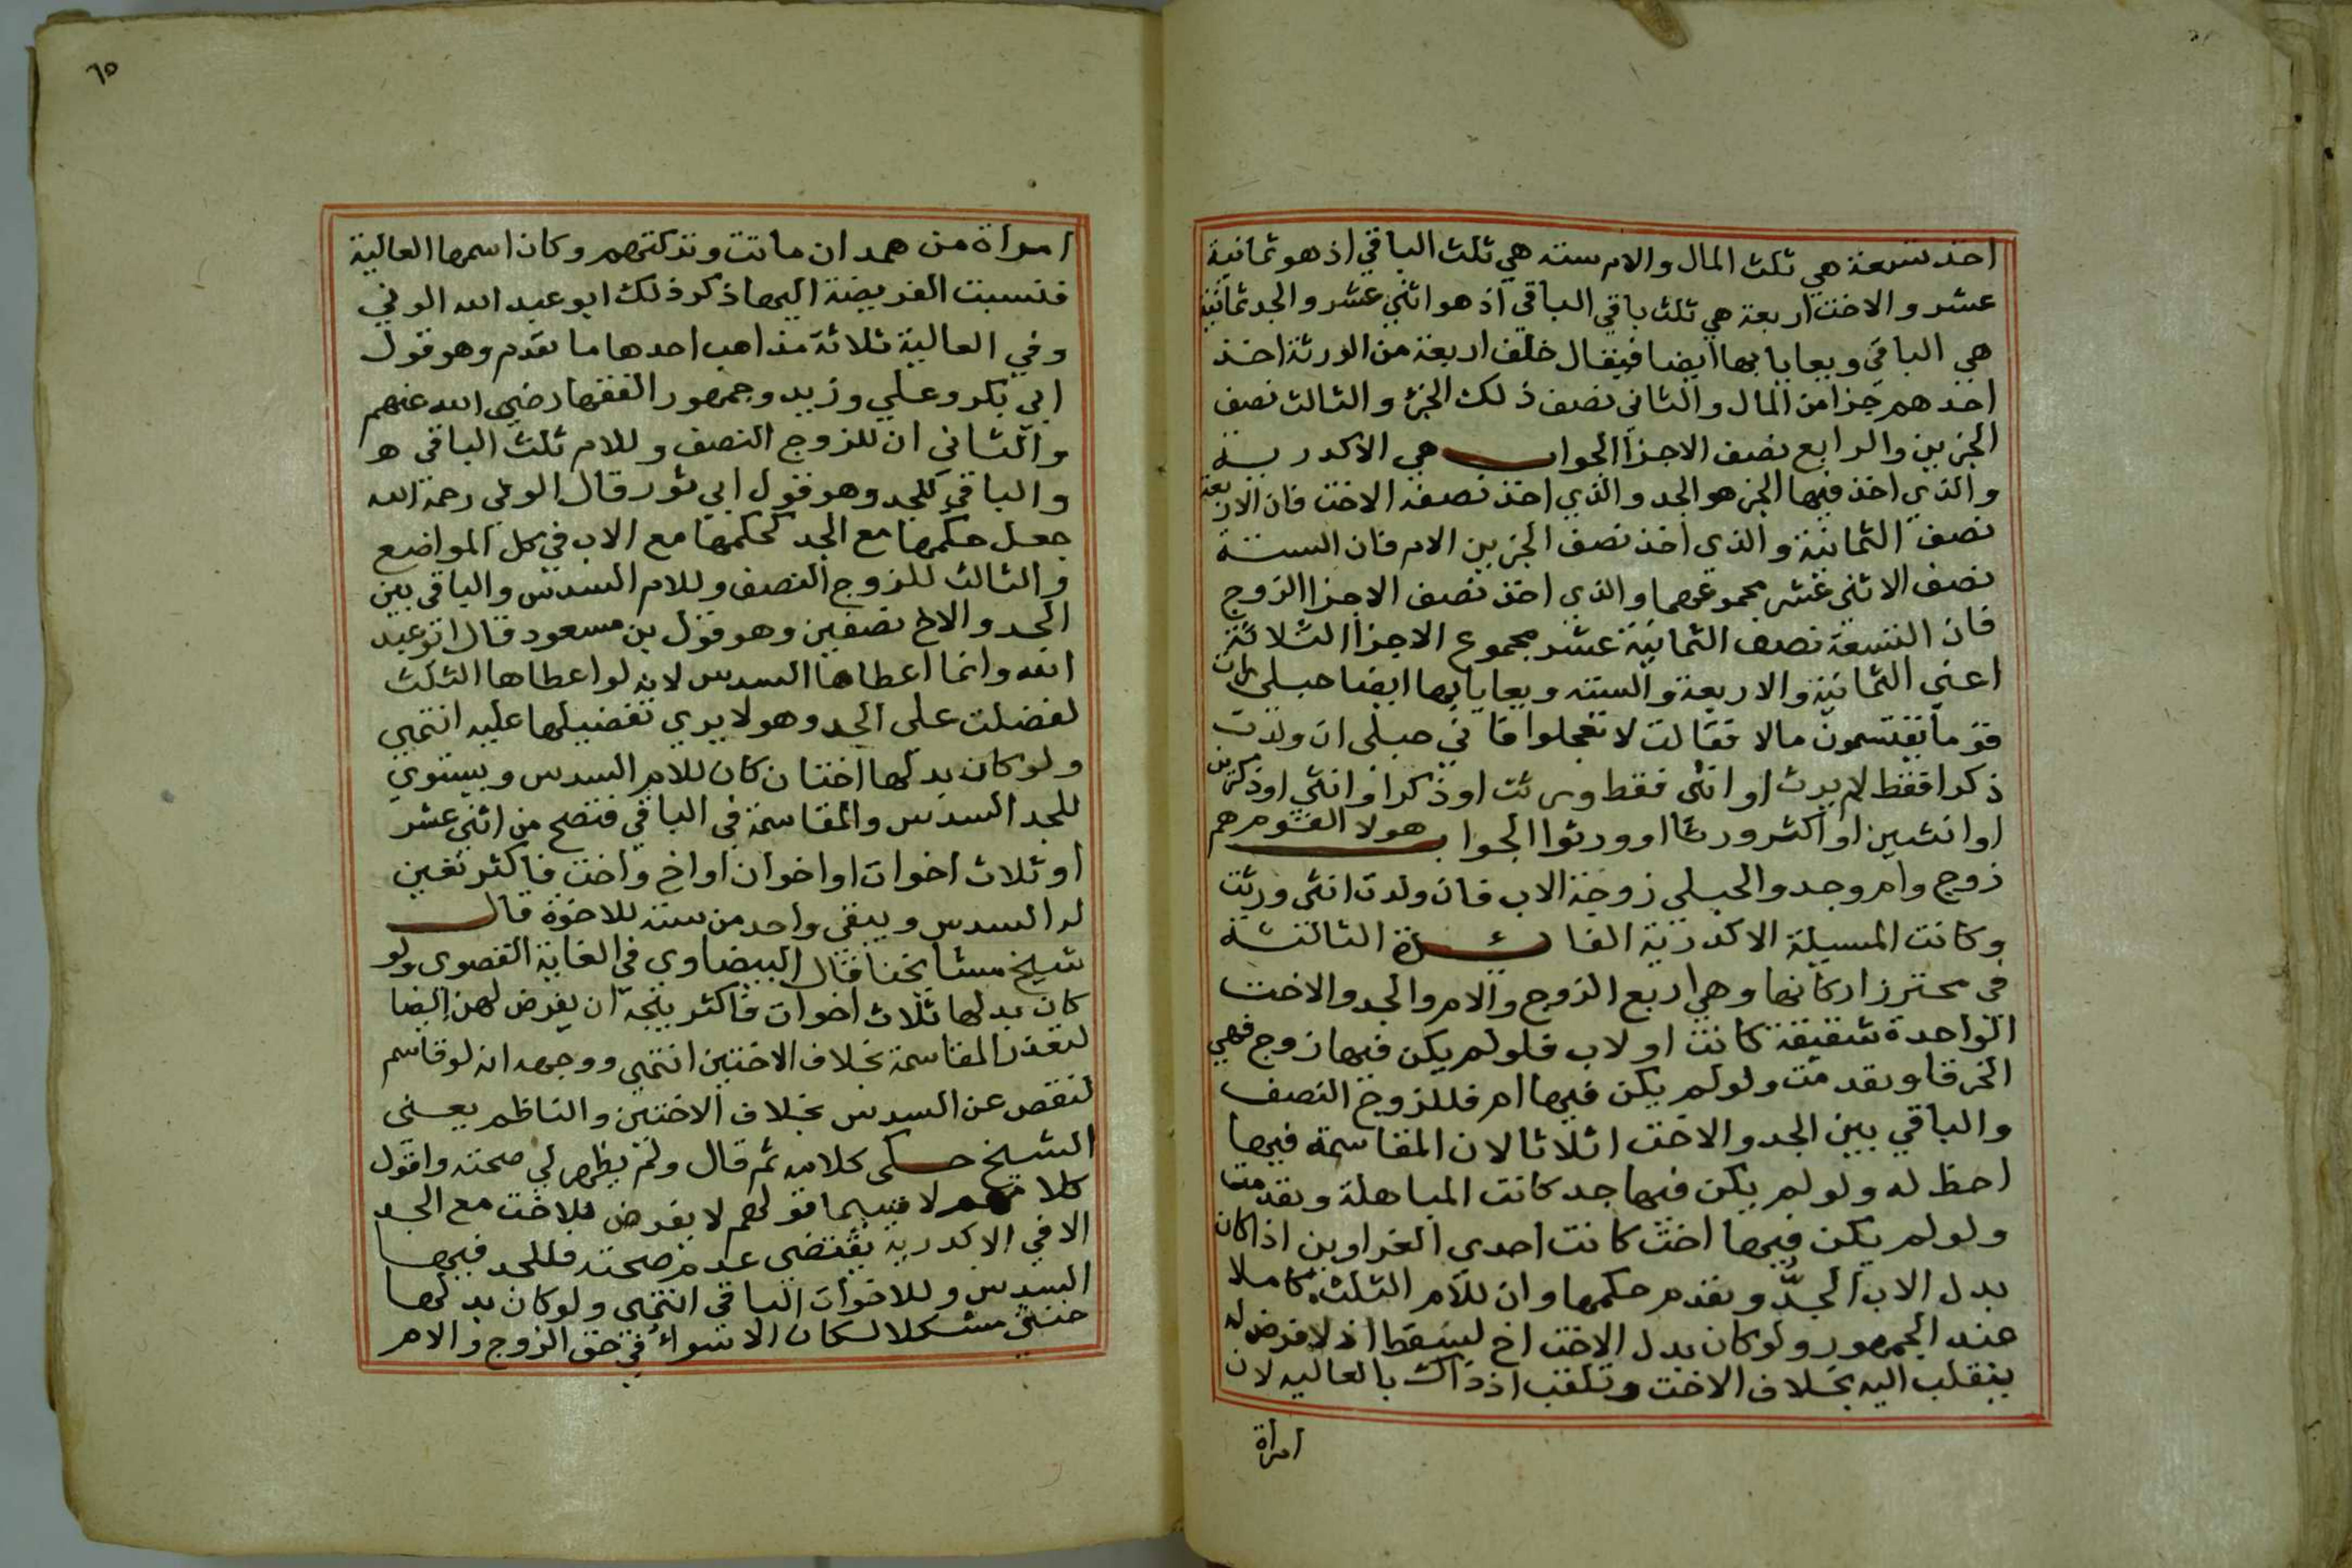 احذ تسعة هي ثلث المال والام ستة هي ثلث الباقي اذ هو ثمانية
عشر والاخت اربعة هي ثلث باقي الباقي اذ هو اثني عشر والجد ثمانية
هي الباقي ويعايا بها ايضا فيقال خلف اربعة من الورثة اخذ
احدهم جزا من المال والثاني نصف ذلك الجزء والثالث نصف
الجزيين والرابع نصف الاجزا الجواب هي الاكدرية
والذي اخذ فيها الجز هو الجد والذي اخذ نصفه الاخت فان الاربعة
نصف الثمانية والذي اخذ نصف الجزيين الام فان الستة
نصف الاثني عشر مجموعهما والذي اخذ نصف الاجزا الزوج
فان التسعة نصف الثمانية عشر مجموع الاجزا الثلاثة
اعني الثمانية والاربعة والستة ويعايا بها ايضا حبلى رات
قوما يقتسمون مالا فقالت لا تعجلوا فاني حبلى ان ولدت
ذكرا فقط لم يرث او انثى فقط ورثت او ذكرا وانثى او ذكرين
او انثيين او اكثر ورثا او ورثوا الجواب هولا القوم هم
زوج وام وجد والحبلى زوجة الاب فان ولدت انثى ورثت
وكانت المسيلة الاكدرية الفائدة الثالثة
في محترز اركانها وهي اربع الزوج والام والجد والاخت
الواحدة شقيقة كانت او لاب فلو لم يكن فيها زوج فهي
الخرقا وتقدمت ولو لم يكن فيها ام فللزوج النصف
والباقي بين الجد والاخت اثلاثا لان المقاسمة فيها
احظ له ولو لم يكن فيها جد كانت المباهلة وتقدمت
ولو لم يكن فيها اخت كانت احدى الغراوين اذا كان
بدل الاب الجدّ وتقدم حكمها وان للام الثلث كاملا
عند الجمهور ولو كان بدل الاخت اخ لسقط اذ لا فرض له
ينقلب اليه بخلاف الاخت وتلقب اذ ذاك بالعاليه لان
امراة
٦٥
امراة من همدان ماتت وتركتهم وكان اسمها العالية
فنسبت الفريضة اليها ذكر ذلك ابو عبد الله الوني
وفي العالية ثلاثة مذاهب احدها ما تقدم وهو قول
ابي بكر وعلي وزيد وجمهور الفقها رضي الله عنهم
والثاني ان للزوج النصف وللام ثلث الباقي ه
والباقي للجد وهو قول ابي ثور قال الوني رحمة الله
جعل حكمها مع الجد كحكمها مع الاب في كل المواضع
والثالث للزوج النصف وللام السدس والباقي بين
الجد والاخ نصفين وهو قول بن مسعود قال ابو عبد
الله وانما اعطاها السدس لانه لو اعطاها الثلث
لفضلت على الجد وهو لا يرى تفضيلها عليه انتهى
ولو كان بدلها اختان كان للام السدس ويستوي
للجد السدس والمقاسمة في الباقي فتصح من اثني عشر
او ثلاث اخوات او اخوان او اخ واخت فاكثر تعين
له السدس ويبقى واحد من ستة للاخوة قال
شيخ مشايخنا قال البيضاوي في الغاية القصوى ولو
كان بدلها ثلاث اخوات فاكثر يتجه ان يفرض لهن ايضا
لتعذر المقاسمة بخلاف الاختين انتهى ووجهه انه لو قاسم
لنقص عن السدس بخلاف الاختين والناظم يعني
الشيخ حكى كلامه ثم قال ولم يظهر لي صحته واقول
كلامهم لا سيما قولهم لا يفرض للاخت مع الجد
الا في الاكدرية يقتضي عدم صحته فللجد فيها
السدس وللاخوات الباقي انتهى ولو كان بدلها
خنثى مشكلا لكان الاسوأ في حق الزوج والام